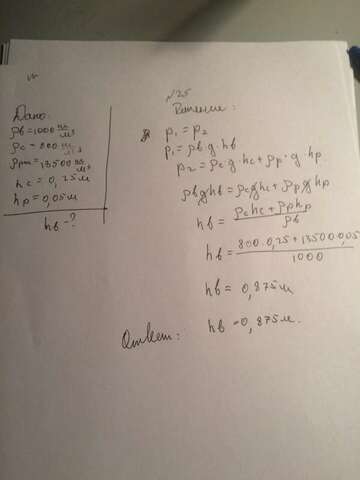 №25
Дано:
ρв=1000 кг/м³
ρс=800 кг/м³
ρрт=13500 кг/м³
hс=0,25м
hр=0,05м
hв-?
Решение:
p₁=p₂
p₁=ρв g hв
p₂=ρс g hс+ρр·g hр
ρв g hв=ρс g hс+ρр g hр
hв=(ρс hс+ρр hр)/ρв
hв=(800·0,25+13500·0,05)/1000
hв=0,875м
Ответ: hв=0,875м.